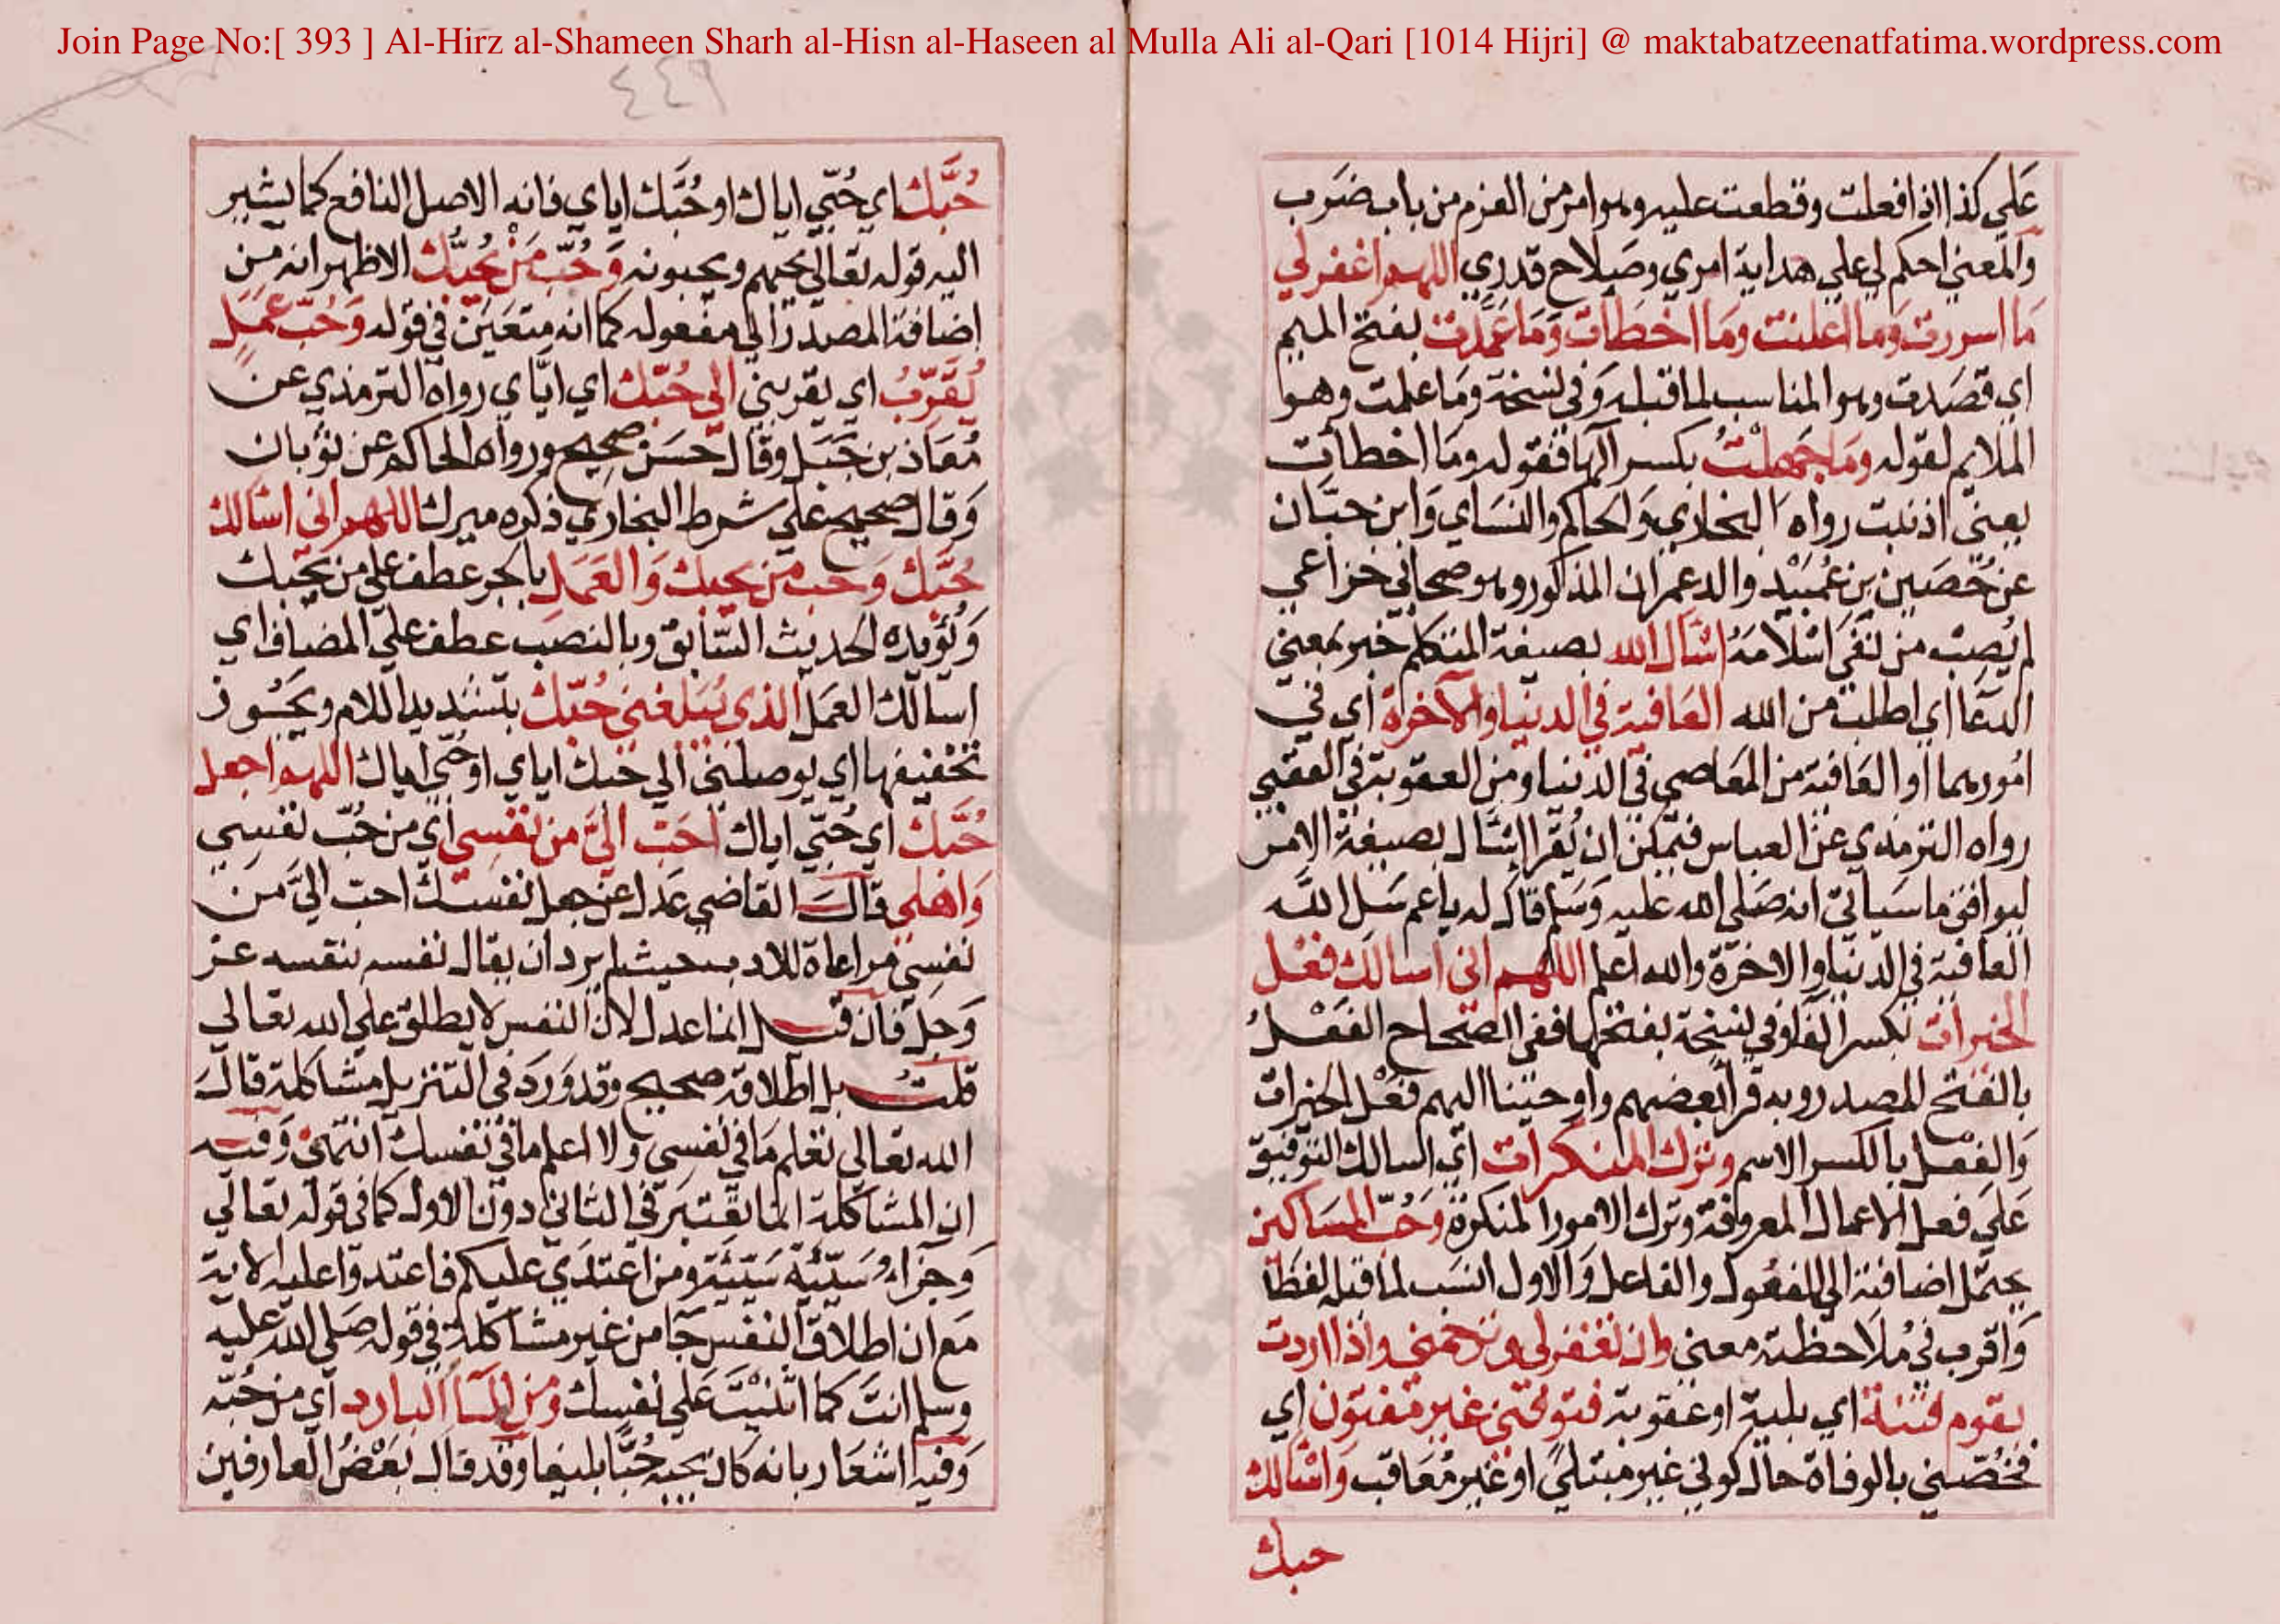 Join Page No:[ 393 ] Al-Hirz al-Shameen Sharh al-Hisn al-Haseen al Mulla Ali al-Qari [1014 Hijri] @ maktabatzeenatfatima.wordpress.com
٤٤٩
عَلي كذا اذا فعلت وقطعت عليه وهو امر من العزم من باب ضَرب
والمعني احكم لي علي هداية امري وصَلاح قدري اللهم اغفر لي
مَا اسررت وَما اعلنت ومَا اخطَات وَمَا عَمَدت بفتح الميم
اي قصَدت وهو المناسب لما قبله وَفي نسخة ومَا علمت وهو
الملايم لقوله ومَا جَهِلْتُ بكسر الها فقوله ومَا اخطات
بمعني اذنبت رواه البخاري وَالحاكم والنسَاي وَابن حبَان
عن حُصَين بن عُبَيْد والد عمران المذكور وهو صحابي خزاعي
لم يُصِبْ من نَفَي اسْلامَهُ اسْأَل الله بصيغة المتكلم خبر بمعني
الدعَا اي اطلب من الله العَافية في الدنيا والآخرة اي في
امُورهما او العَافية من المعَاصي في الدنيا ومن العقوبة في العقبي
رواه الترمذي عن العباس فيمكن ان يُقرا اسْأل بصيغة الامر
ليوافق ما سَياتي انه صَلي الله عليه وَسَلم قَال له ياعم سَل الله
العَافية في الدنيا والاخرَة والله اعلم اللهم اني اسالك فعْل
الخيرات بكسر الفا وفي نسخة بفتحها ففي الصحاح الفَعْلُ
بالفتح المصدر وبه قرأ بعضهم واوحينا اليهم فَعْل الخيرات
وَالفعل بالكسر الاسم وترك المنكرات اي اسالك التوفيق
عَلَي فعل الاعمال المعروفة وترك الامور المنكرة وَحُبّ المسَاكين
يحتمل اضافته الي المفعُول والفاعل وَالاول انسَب لما قبله لفظا
وَاقرب في مُلاحظته معني وان تغفر لي وترحمني واذا اردت
بقوم فتنة اي بلية او عقوبة فتوفني غير مفتون اي
فخُصّني بالوفاة حال كوني غير مبتلي او غير مُعَاقب وَاسْالك
حبك
حُبَّك اي حُبّي اياك او حُبَّك اياي فانه الاصل النافع كما يشير
اليه قوله تعالي يحبهم ويحبونه وَحُبّ مَنْ يُحِبُّك الاظهر انه من
اضافة المصدر الي مفعوله كما انه متعَيَن في قوله وَحُبّ عَمَلٍ
يُقَرّبُ اي يقربني الي حُبّك اي ايَّاي رواه الترمذي عن
مُعَاذ بن جَبَل وقال حسَن صحيح ورواه الحاكم عن ثوبان
وَقال صحيح علي شرط البخاري ذكره ميرك اللهم اني اسْالك
حُبَّك وَحب من يحبك وَالعَمَلِ بالجر عطف علي من يحبك
وَيُؤَيده الحديث السَّابق وبالنصب عطف علي المضاف اي
اسالك العَمَل الذي يُبَلغني حُبّك بتشديد اللام ويجُوز
تخفيفها اي يوصلني الي حبك اياي او حُبّي اياك اللهم اجعل
حُبَّك اي حُبّي اياك احَبّ اليَّ من نفسِي اي من حُبّ نفسِي
وَاهْلي قالَ القاضي عَدل عن جعل نفسَك احب اليَّ من
نفسِي مراعاة للادب حيث لم يرد ان يقال نفسه بنفسه عز
وَجلّ فان قيل انما عدل لان النفس لا يطلق علي الله تعالي
قلتُ بل اطلاقه صحيح وقد وَرَد في التنزيل مشاكلة قالَ
الله تعالي تعْلم مَا في نفسي ولا اعلم ما في نفسك انتهي وَفيه
ان المشَاكلة انما تعتبَر في الثاني دون الاول كما في قوله تعالي
وَجزاءُ سَيّئَة سَيّئَة ومن اعتدَي عليكم فاعتدوا عليه الاية
مَع ان اطلاق النفس جَا من غير مشَاكلة في قوله صَلي الله عليه
وسلم انتَ كما اثنَيْتَ عَلي نفسِك وَمن المَا البارد اي من حُبّه
وَفيه اشعَار بانه كان يحبه حُبًّا بليغا وقد قال بَعْضُ العارفين